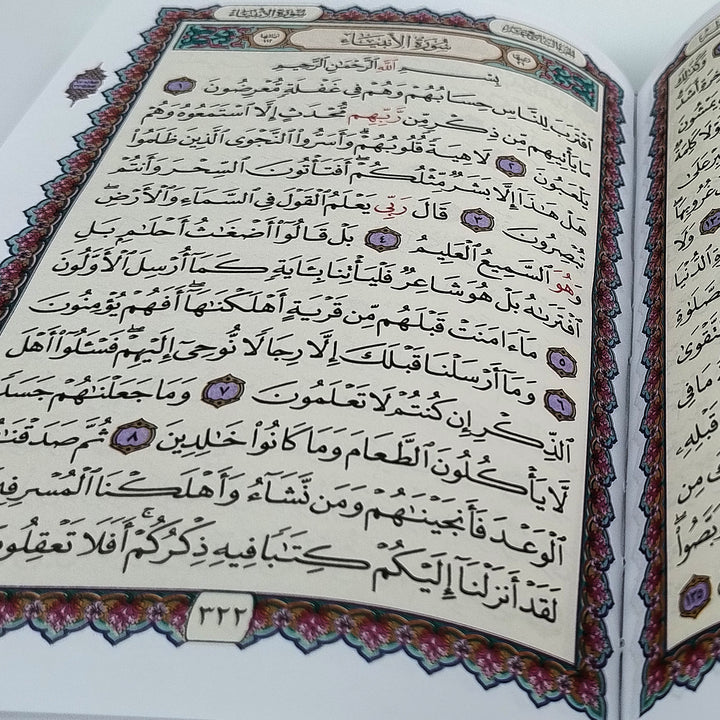 سُورَةُ الأَنبِيَاء
سُورَةُ الأَنبِيَاء
بِسْمِ ٱللَّهِ ٱلرَّحْمَٰنِ ٱلرَّحِيمِ
ٱقْتَرَبَ لِلنَّاسِ حِسَابُهُمْ وَهُمْ فِى غَفْلَةٍ مُّعْرِضُونَ ١
مَا يَأْتِيهِم مِّن ذِكْرٍ مِّن رَّبِّهِم مُّحْدَثٍ إِلَّا ٱسْتَمَعُوهُ وَهُمْ
يَلْعَبُونَ ٢ لَاهِيَةً قُلُوبُهُمْ ۗ وَأَسَرُّوا۟ ٱلنَّجْوَى ٱلَّذِينَ ظَلَمُوا۟
هَلْ هَٰذَآ إِلَّا بَشَرٌ مِّثْلُكُمْ ۖ أَفَتَأْتُونَ ٱلسِّحْرَ وَأَنتُمْ
تُبْصِرُونَ ٣ قَالَ رَبِّى يَعْلَمُ ٱلْقَوْلَ فِى ٱلسَّمَآءِ وَٱلْأَرْضِ ۖ
وَهُوَ ٱلسَّمِيعُ ٱلْعَلِيمُ ٤ بَلْ قَالُوٓا۟ أَضْغَٰثُ أَحْلَٰمٍۭ بَلِ
ٱفْتَرَىٰهُ بَلْ هُوَ شَاعِرٌ فَلْيَأْتِنَا بِـَٔايَةٍ كَمَآ أُرْسِلَ ٱلْأَوَّلُونَ
٥ مَآ ءَامَنَتْ قَبْلَهُم مِّن قَرْيَةٍ أَهْلَكْنَٰهَآ ۖ أَفَهُمْ يُؤْمِنُونَ
٦ وَمَآ أَرْسَلْنَا قَبْلَكَ إِلَّا رِجَالًا نُّوحِىٓ إِلَيْهِمْ ۖ فَسْـَٔلُوٓا۟ أَهْلَ
ٱلذِّكْرِ إِن كُنتُمْ لَا تَعْلَمُونَ ٧ وَمَا جَعَلْنَٰهُمْ جَسَدًا
لَّا يَأْكُلُونَ ٱلطَّعَامَ وَمَا كَانُوا۟ خَٰلِدِينَ ٨ ثُمَّ صَدَقْنَٰ
ٱلْوَعْدَ فَأَنجَيْنَٰهُمْ وَمَن نَّشَآءُ وَأَهْلَكْنَا ٱلْمُسْرِفِ
لَقَدْ أَنزَلْنَآ إِلَيْكُمْ كِتَٰبًا فِيهِ ذِكْرُكُمْ ۖ أَفَلَا تَعْقِلُو
٣٢٢
وَلَا
قَبْلِهِ
مِن
١٣٥